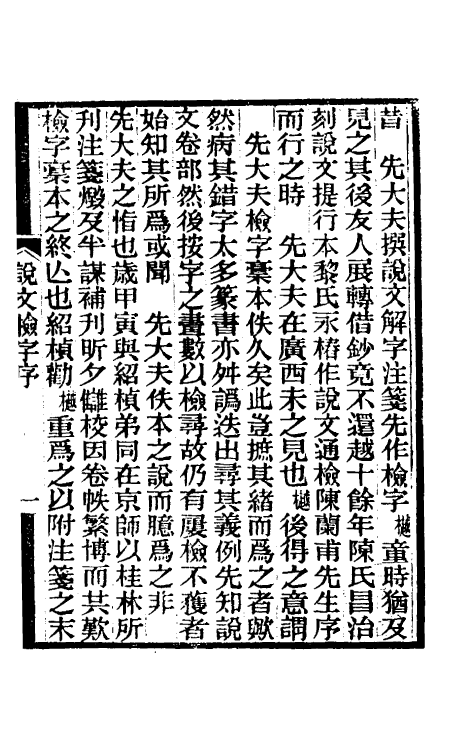 昔　先大夫撰說文解字注箋先作檢字樾童時猶及
見之其後友人展轉借鈔竟不還越十餘年陳氏昌治
刻說文提行本黎氏永椿作說文通檢陳蘭甫先生序
而行之時　先大夫在廣西未之見也樾後得之意謂
先大夫檢字稾本佚久矣此豈摭其緒而爲之者歟
然病其錯字太多篆書亦舛譌迭出尋其義例先知說
文卷部然後按字之畫數以檢尋故仍有屢檢不獲者
始知其所爲或聞　先大夫佚本之說而臆爲之非
先大夫之恉也歲甲寅與紹楨弟同在京師以桂林所
刊注箋燬及半謀補刊昕夕讎校因卷帙繁博而共歎
檢字稾本之終亾也紹楨勸樾重爲之以附注箋之末
說文檢字序　一